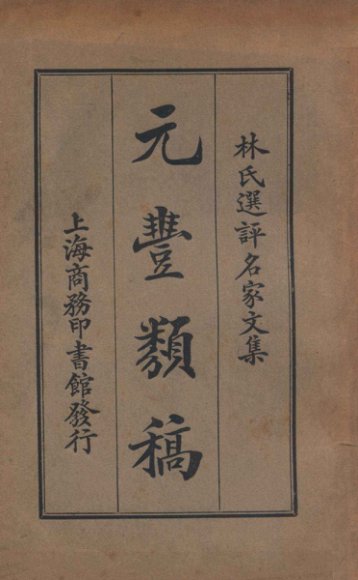 林氏選評名家文集
元豐類稿
上海商務印書館發行